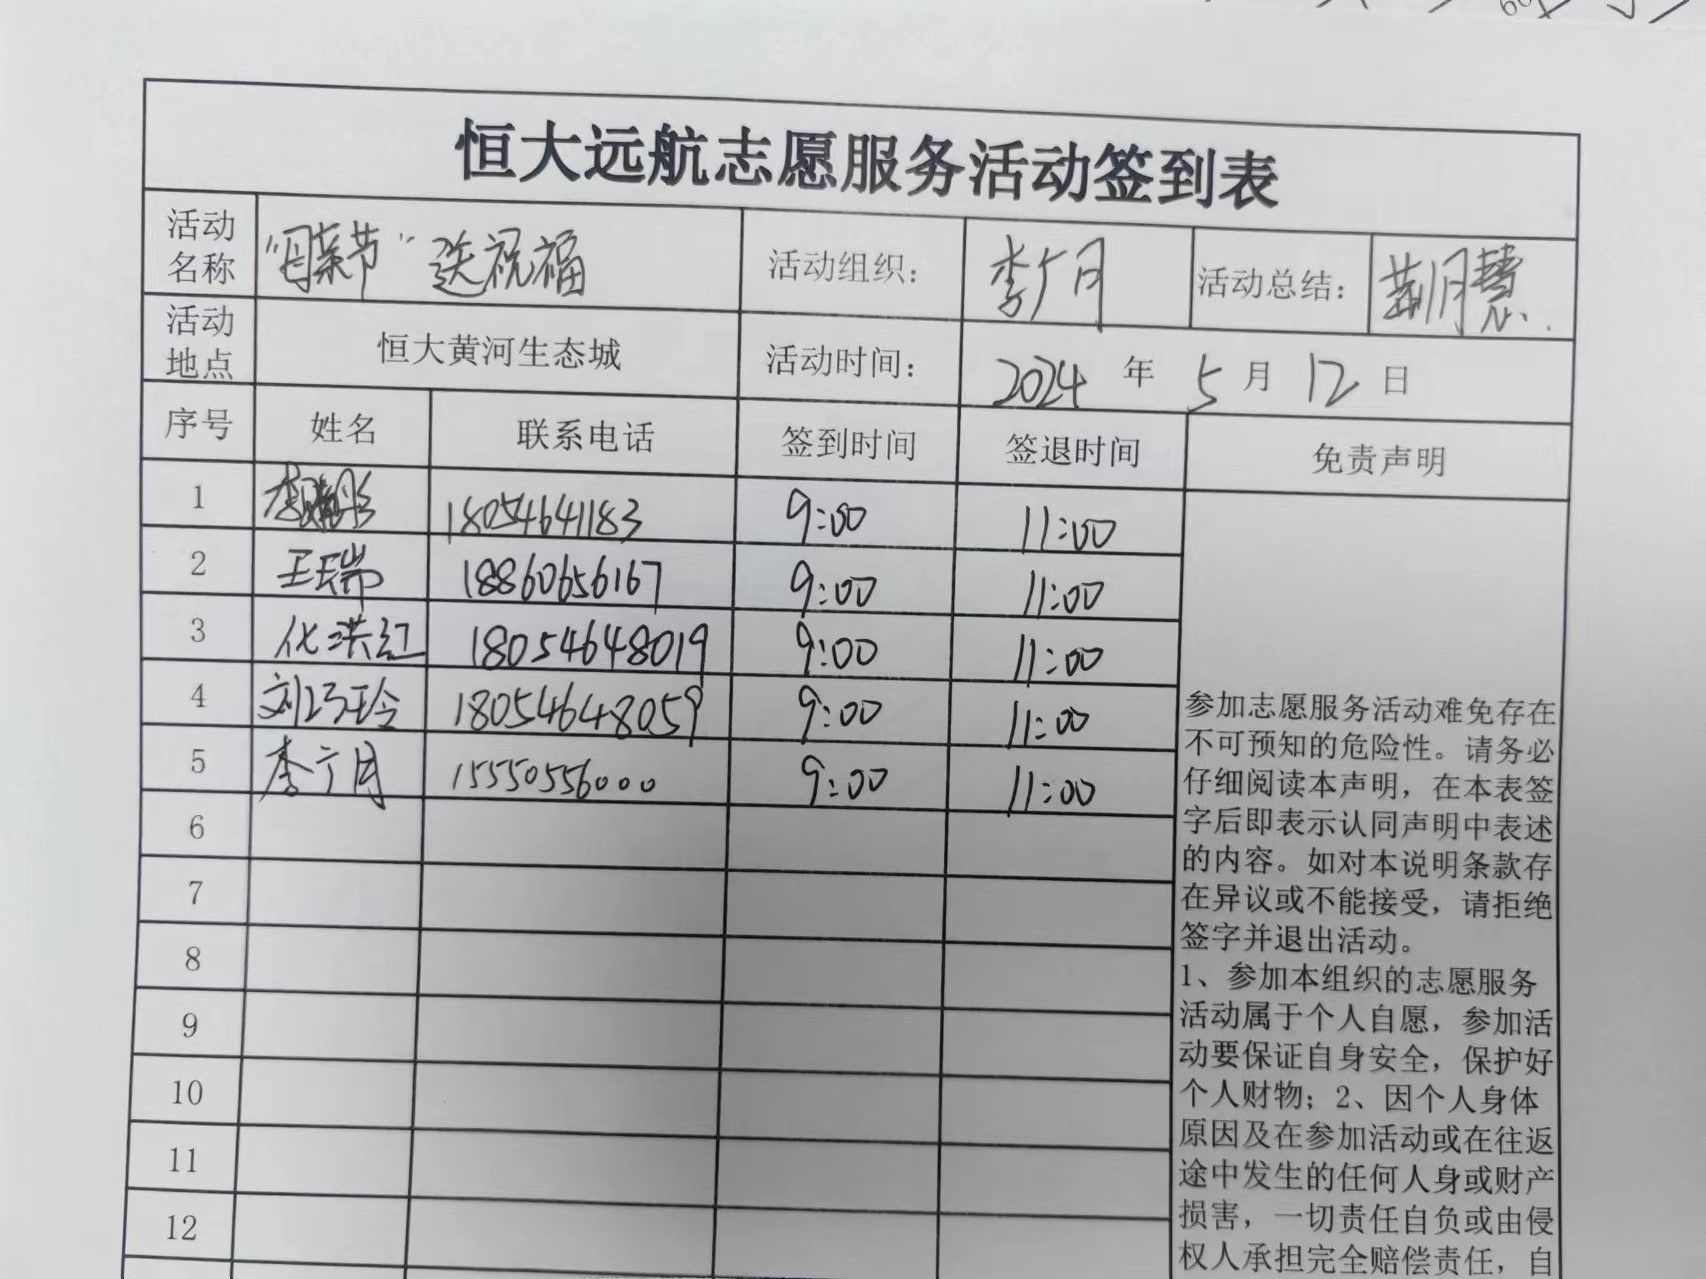 恒大远航志愿服务活动签到表
活动名称 "母亲节"送祝福 活动组织： 李广月 活动总结： 荆月慧
活动地点 恒大黄河生态城 活动时间： 2024 年 5 月 12 日
序号 姓名 联系电话 签到时间 签退时间 免责声明
1 18054641183 9:00 11:00
2 王瑞 18860656167 9:00 11:00
3 化洪红 18054648019 9:00 11:00
4 18054648059 9:00 11:00
5 李广月 15550556000 9:00 11:00
6
7
8
9
10
11
12
参加志愿服务活动难免存在
不可预知的危险性。请务必
仔细阅读本声明，在本表签
字后即表示认同声明中表述
的内容。如对本说明条款存
在异议或不能接受，请拒绝
签字并退出活动。
1、参加本组织的志愿服务
活动属于个人自愿，参加活
动要保证自身安全，保护好
个人财物；2、因个人身体
原因及在参加活动或在往返
途中发生的任何人身或财产
损害，一切责任自负或由侵
权人承担完全赔偿责任，自